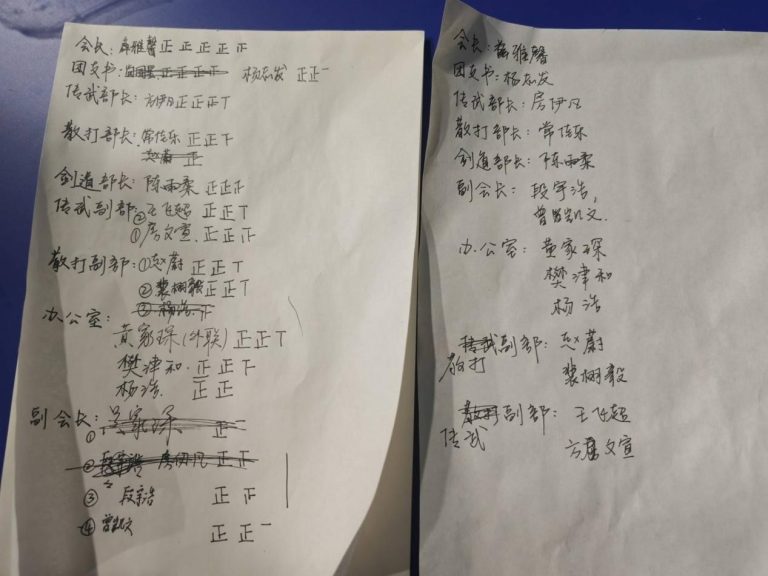 会长：薛雅馨 正 正 正 正 正
团支书：正 正 正 正 杨志发 正正一
传武部长：方伊凡 正 正 正 T
散打部长：常佳乐 正 正 下
赵蔚 正
剑道部长：陈雨柔 正 正 正
传武副部：②王飞超 正 正 T
①房文宣 正 正 正
散打副部：①赵蔚 正 正 T
②裴栩毅 正 正 T
③杨浩 正
办公室：
黄家琛（外联）正 正 T
樊津和 正 正 下
杨浩 正 正
副会长：
① 正
② 房伊凡 正 正
③ 段宇浩 正 正
④ 曾凯文 正 正 一
会长：薛雅馨
团支书：杨志发
传武部长：房伊凡
散打部长：常佳乐
剑道部长：陈雨柔
副会长：段宇浩，
曾凯文.
办公室：黄家琛
樊津和
杨浩
传武副部：赵蔚
散打
裴栩毅
散打副部：王飞超
传武
房文宣